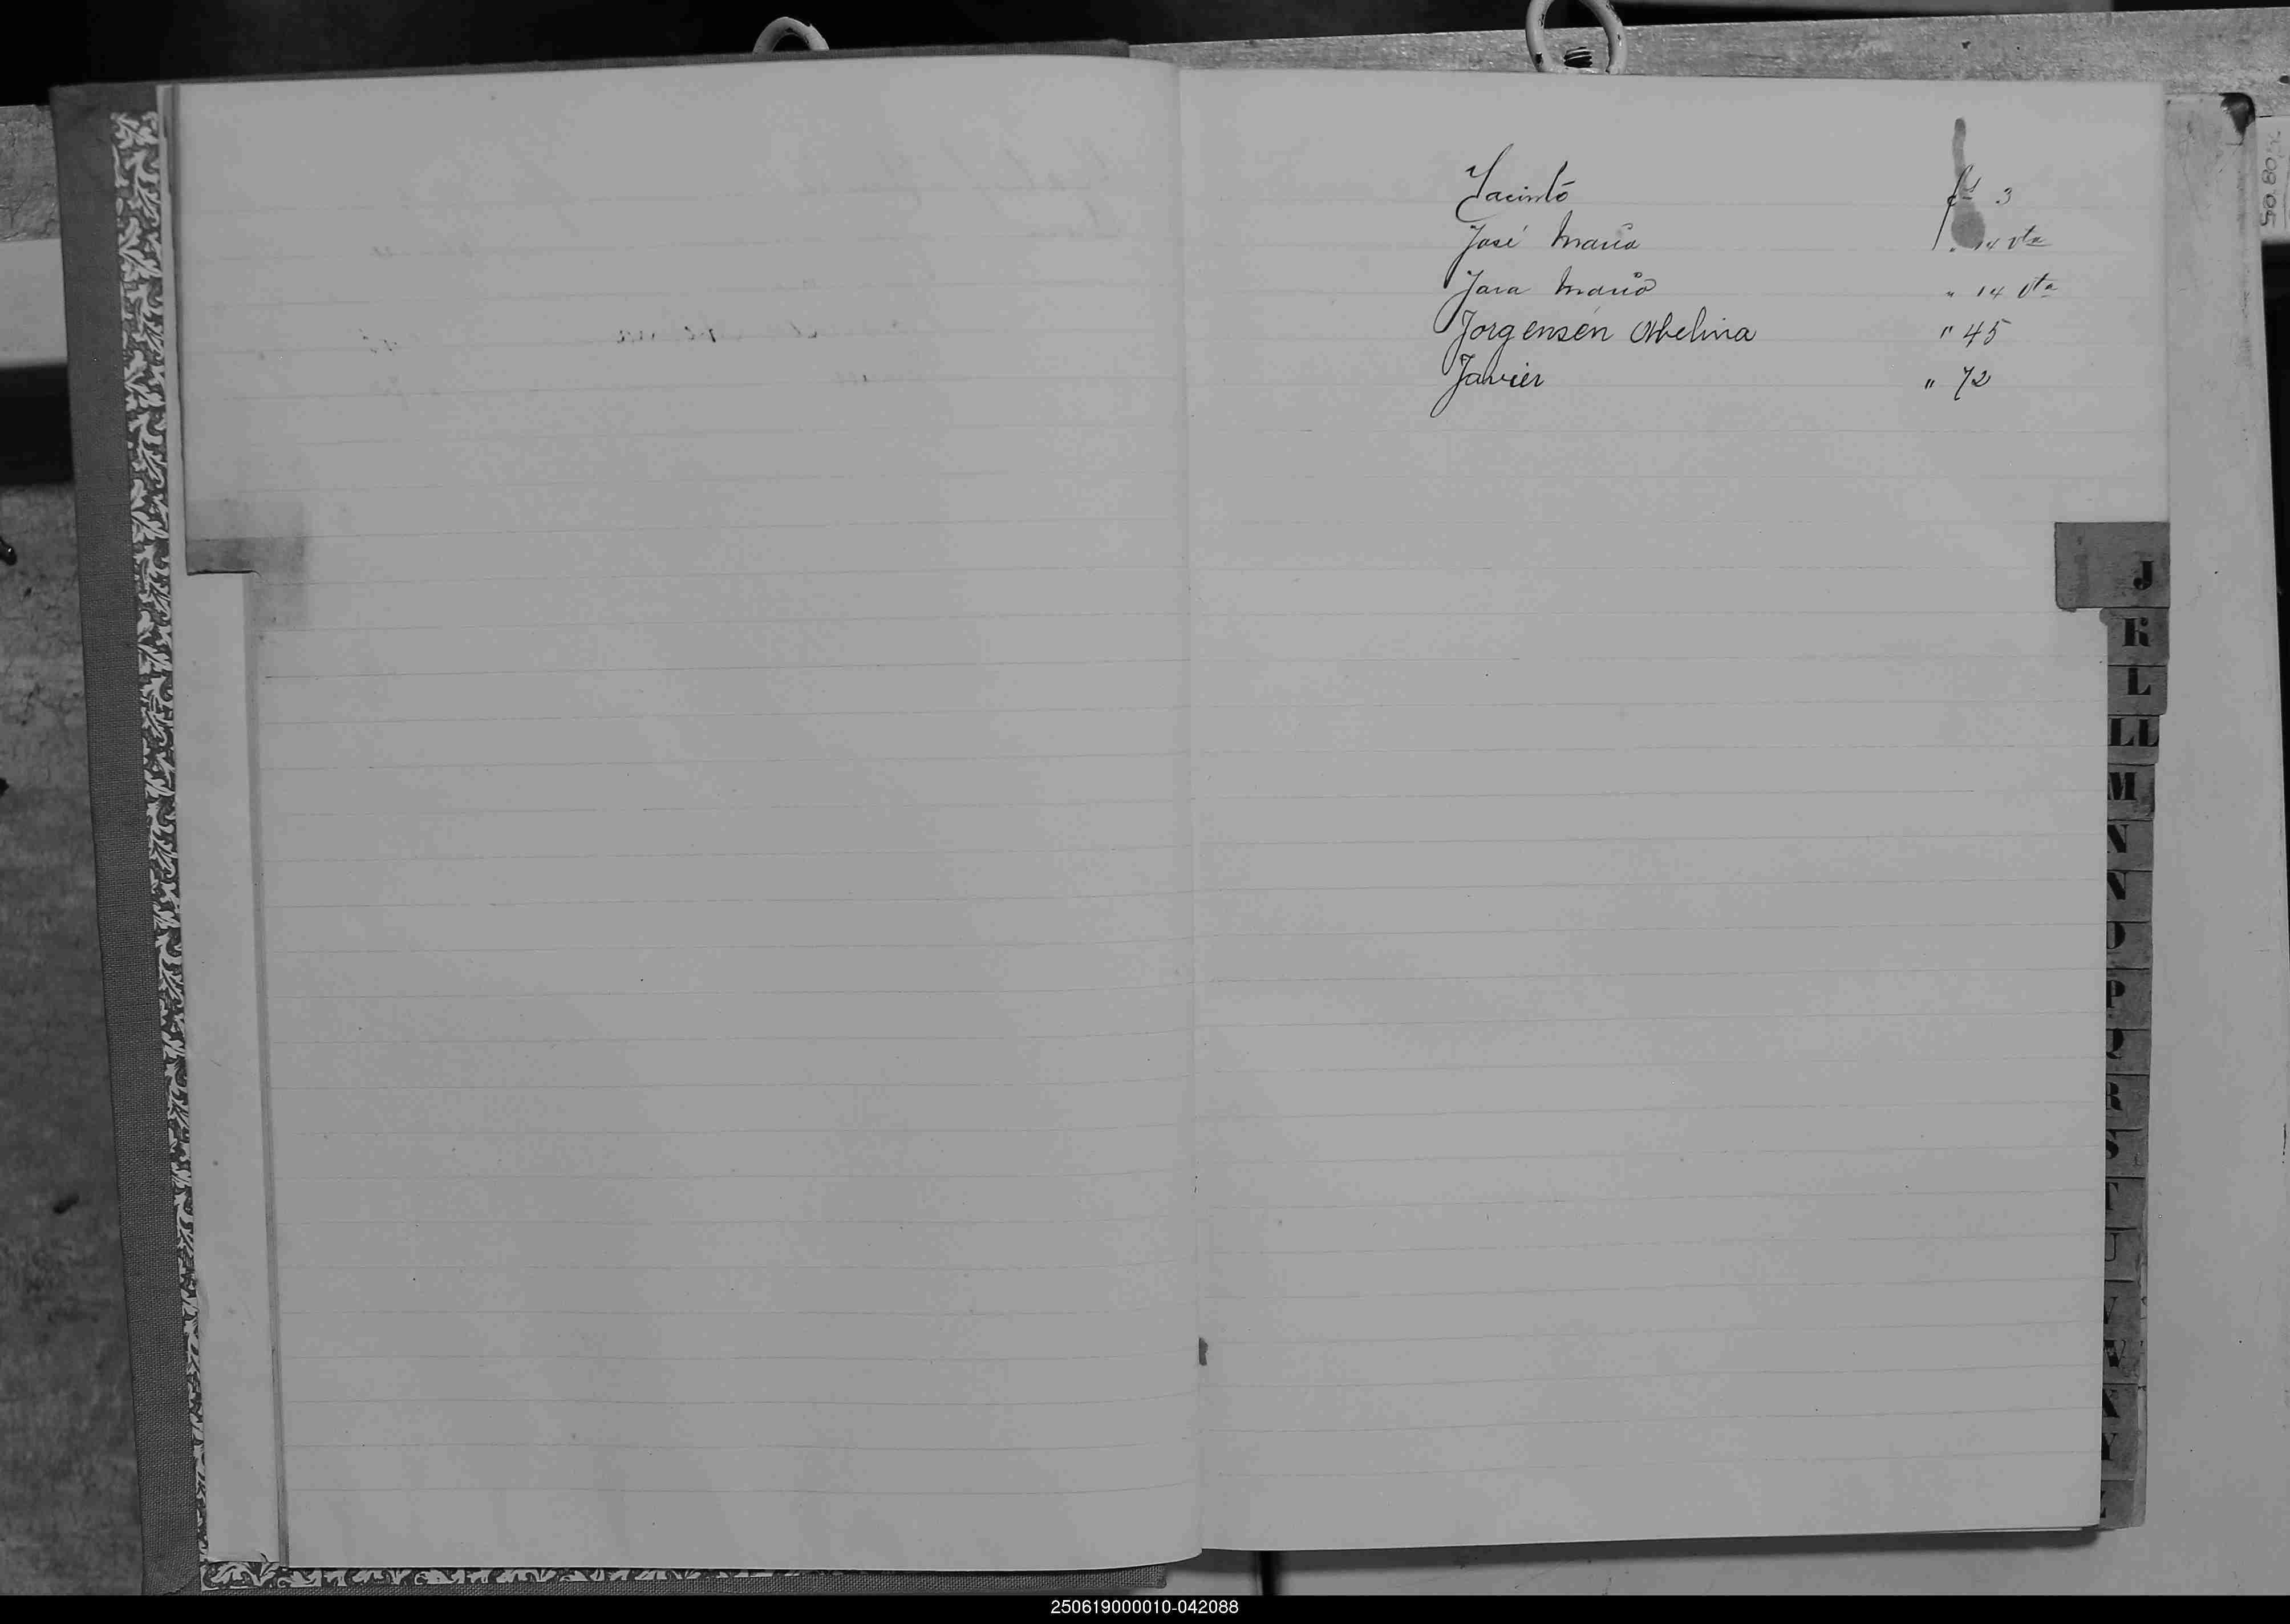 Jacinto fs 3
José Maria " 14 vta
Jara Maria " 14 vta
Jorgensen Abelina " 45
Javier " 72
J
K
L
LL
M
N
N
O
P
Q
R
S
T
U
V
W
X
Y
Z
50.80%
250619000010-042088